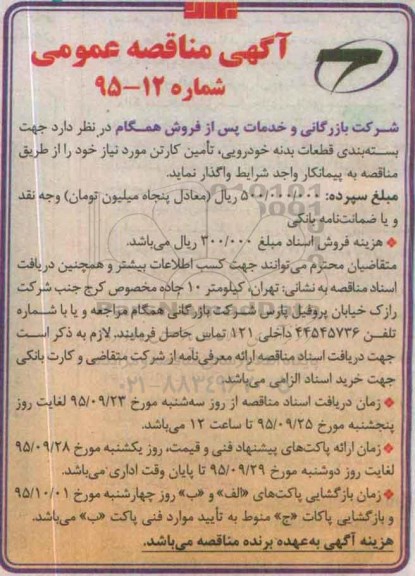 آگهی مناقصه عمومی
شماره ۱۲-۹۵
شرکت بازرگانی و خدمات پس از فروش همگام در نظر دارد جهت
بسته‌بندی قطعات بدنه خودرویی، تأمین کارتن مورد نیاز خود را از طریق
مناقصه به پیمانکار واجد شرایط واگذار نماید.
مبلغ سپرده: ۵۰۰/۰۰۰/۰۰۰ ریال (معادل پنجاه میلیون تومان) وجه نقد
و یا ضمانت‌نامه بانکی
هزینه فروش اسناد مبلغ ۳۰۰/۰۰۰ ریال می‌باشد.
متقاضیان محترم می‌توانند جهت کسب اطلاعات بیشتر و همچنین دریافت
اسناد مناقصه به نشانی: تهران، کیلومتر ۱۰ جاده مخصوص کرج جنب شرکت
رازک خیابان پروفیل پارس شرکت بازرگانی همگام مراجعه و یا با شماره
تلفن ۴۴۵۴۵۷۳۶ داخلی ۱۲۱ تماس حاصل فرمایند. لازم به ذکر است
جهت دریافت اسناد مناقصه ارائه معرفی‌نامه از شرکت متقاضی و کارت بانکی
جهت خرید اسناد الزامی می‌باشد.
زمان دریافت اسناد مناقصه از روز سه‌شنبه مورخ ۹۵/۰۹/۲۳ لغایت روز
پنجشنبه مورخ ۹۵/۰۹/۲۵ تا ساعت ۱۲ می‌باشد.
زمان ارائه پاکت‌های پیشنهاد فنی و قیمت، روز یکشنبه مورخ ۹۵/۰۹/۲۸
لغایت روز دوشنبه مورخ ۹۵/۰۹/۲۹ تا پایان وقت اداری می‌باشد.
زمان بازگشایی پاکت‌های «الف» و «ب» روز چهارشنبه مورخ ۹۵/۱۰/۰۱
و بازگشایی پاکات «ج» منوط به تأیید موارد فنی پاکت «ب» می‌باشد.
هزینه آگهی به‌عهده برنده مناقصه می‌باشد.